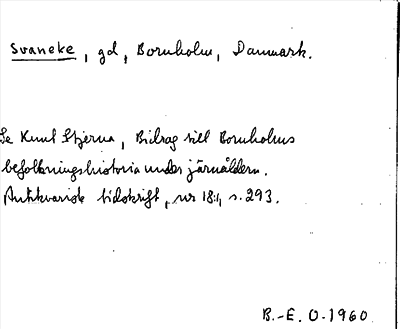 Svaneke, gd, Bornholm, Danmark.
Se Knut Stjerna, Bidrag till Bornholms
befolkningshistoria under järnåldern.
Antikvarisk tidskrift, nr 18:1, s. 293.
B.-E. O. 1960